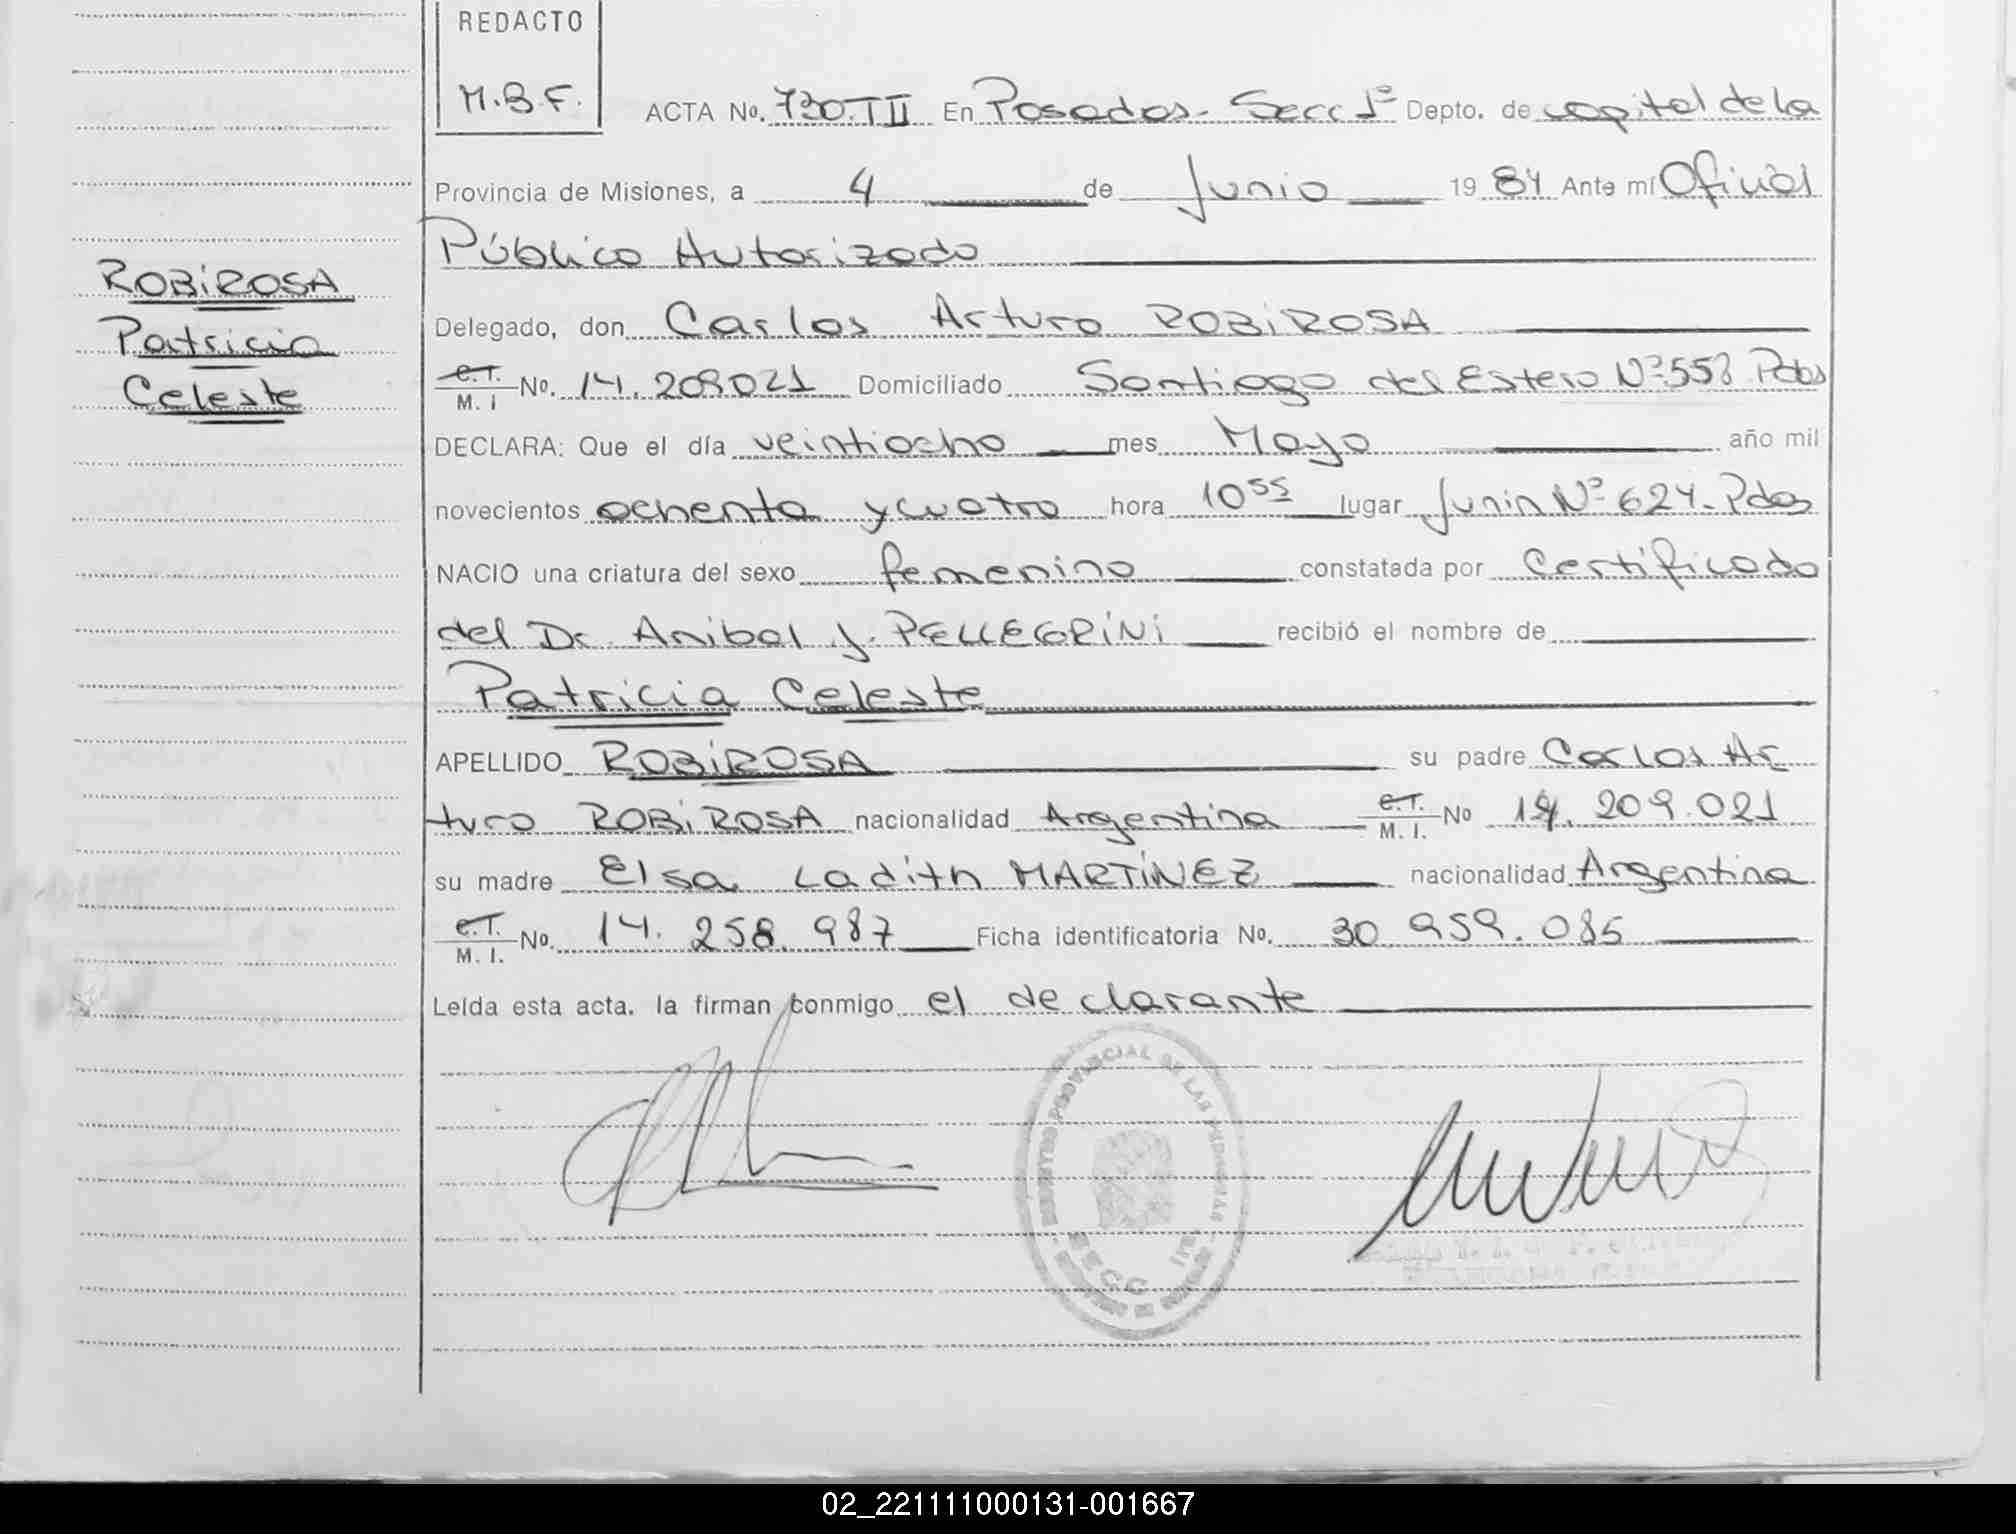 REDACTO
M.B.F.
ACTA No. 730.TII En Posadas - Secc 1ª Depto. de capital de la
Provincia de Misiones, a 4 de Junio 19 84 Ante mí Oficial
Público Autorizado
ROBIROSA
Patricia
Celeste
Delegado, don Carlos Arturo ROBIROSA
C.I. M. I No. 14.209021 Domiciliado Santiago del Estero Nº 558 Pdas
DECLARA: Que el día veintiocho mes Mayo año mil
novecientos ochenta y cuatro hora 10 55 lugar Junin Nº 624 - Pdas
NACIO una criatura del sexo femenino constatada por Certificado
del Dr. Anibal J. PELLEGRINI recibió el nombre de
Patricia Celeste
APELLIDO ROBIROSA su padre Carlos Ar
turo ROBIROSA nacionalidad Argentina C.I. M. I. No 14. 209.021
su madre Elsa Ladith MARTÍNEZ nacionalidad Argentina
C.I. M. I. No. 14. 258. 987 Ficha identificatoria No. 30 959. 085
Leída esta acta, la firman conmigo el declarante
REGISTRO PROVINCIAL DE LAS PERSONAS
SECC 1ra.
02_221111000131-001667